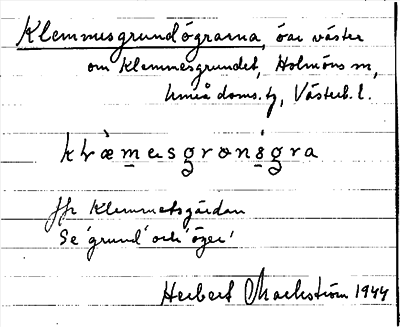 Klemmesgrundögrarna, öar väster
om Klemmesgrundet, Holmöns sn,
Umeå doms. tg, Västerb. l.
kɬæ̀mesgronśgra
jfr Klemmetsgårdan
Se 'grund' och 'öger'
Herbert Markström 1944